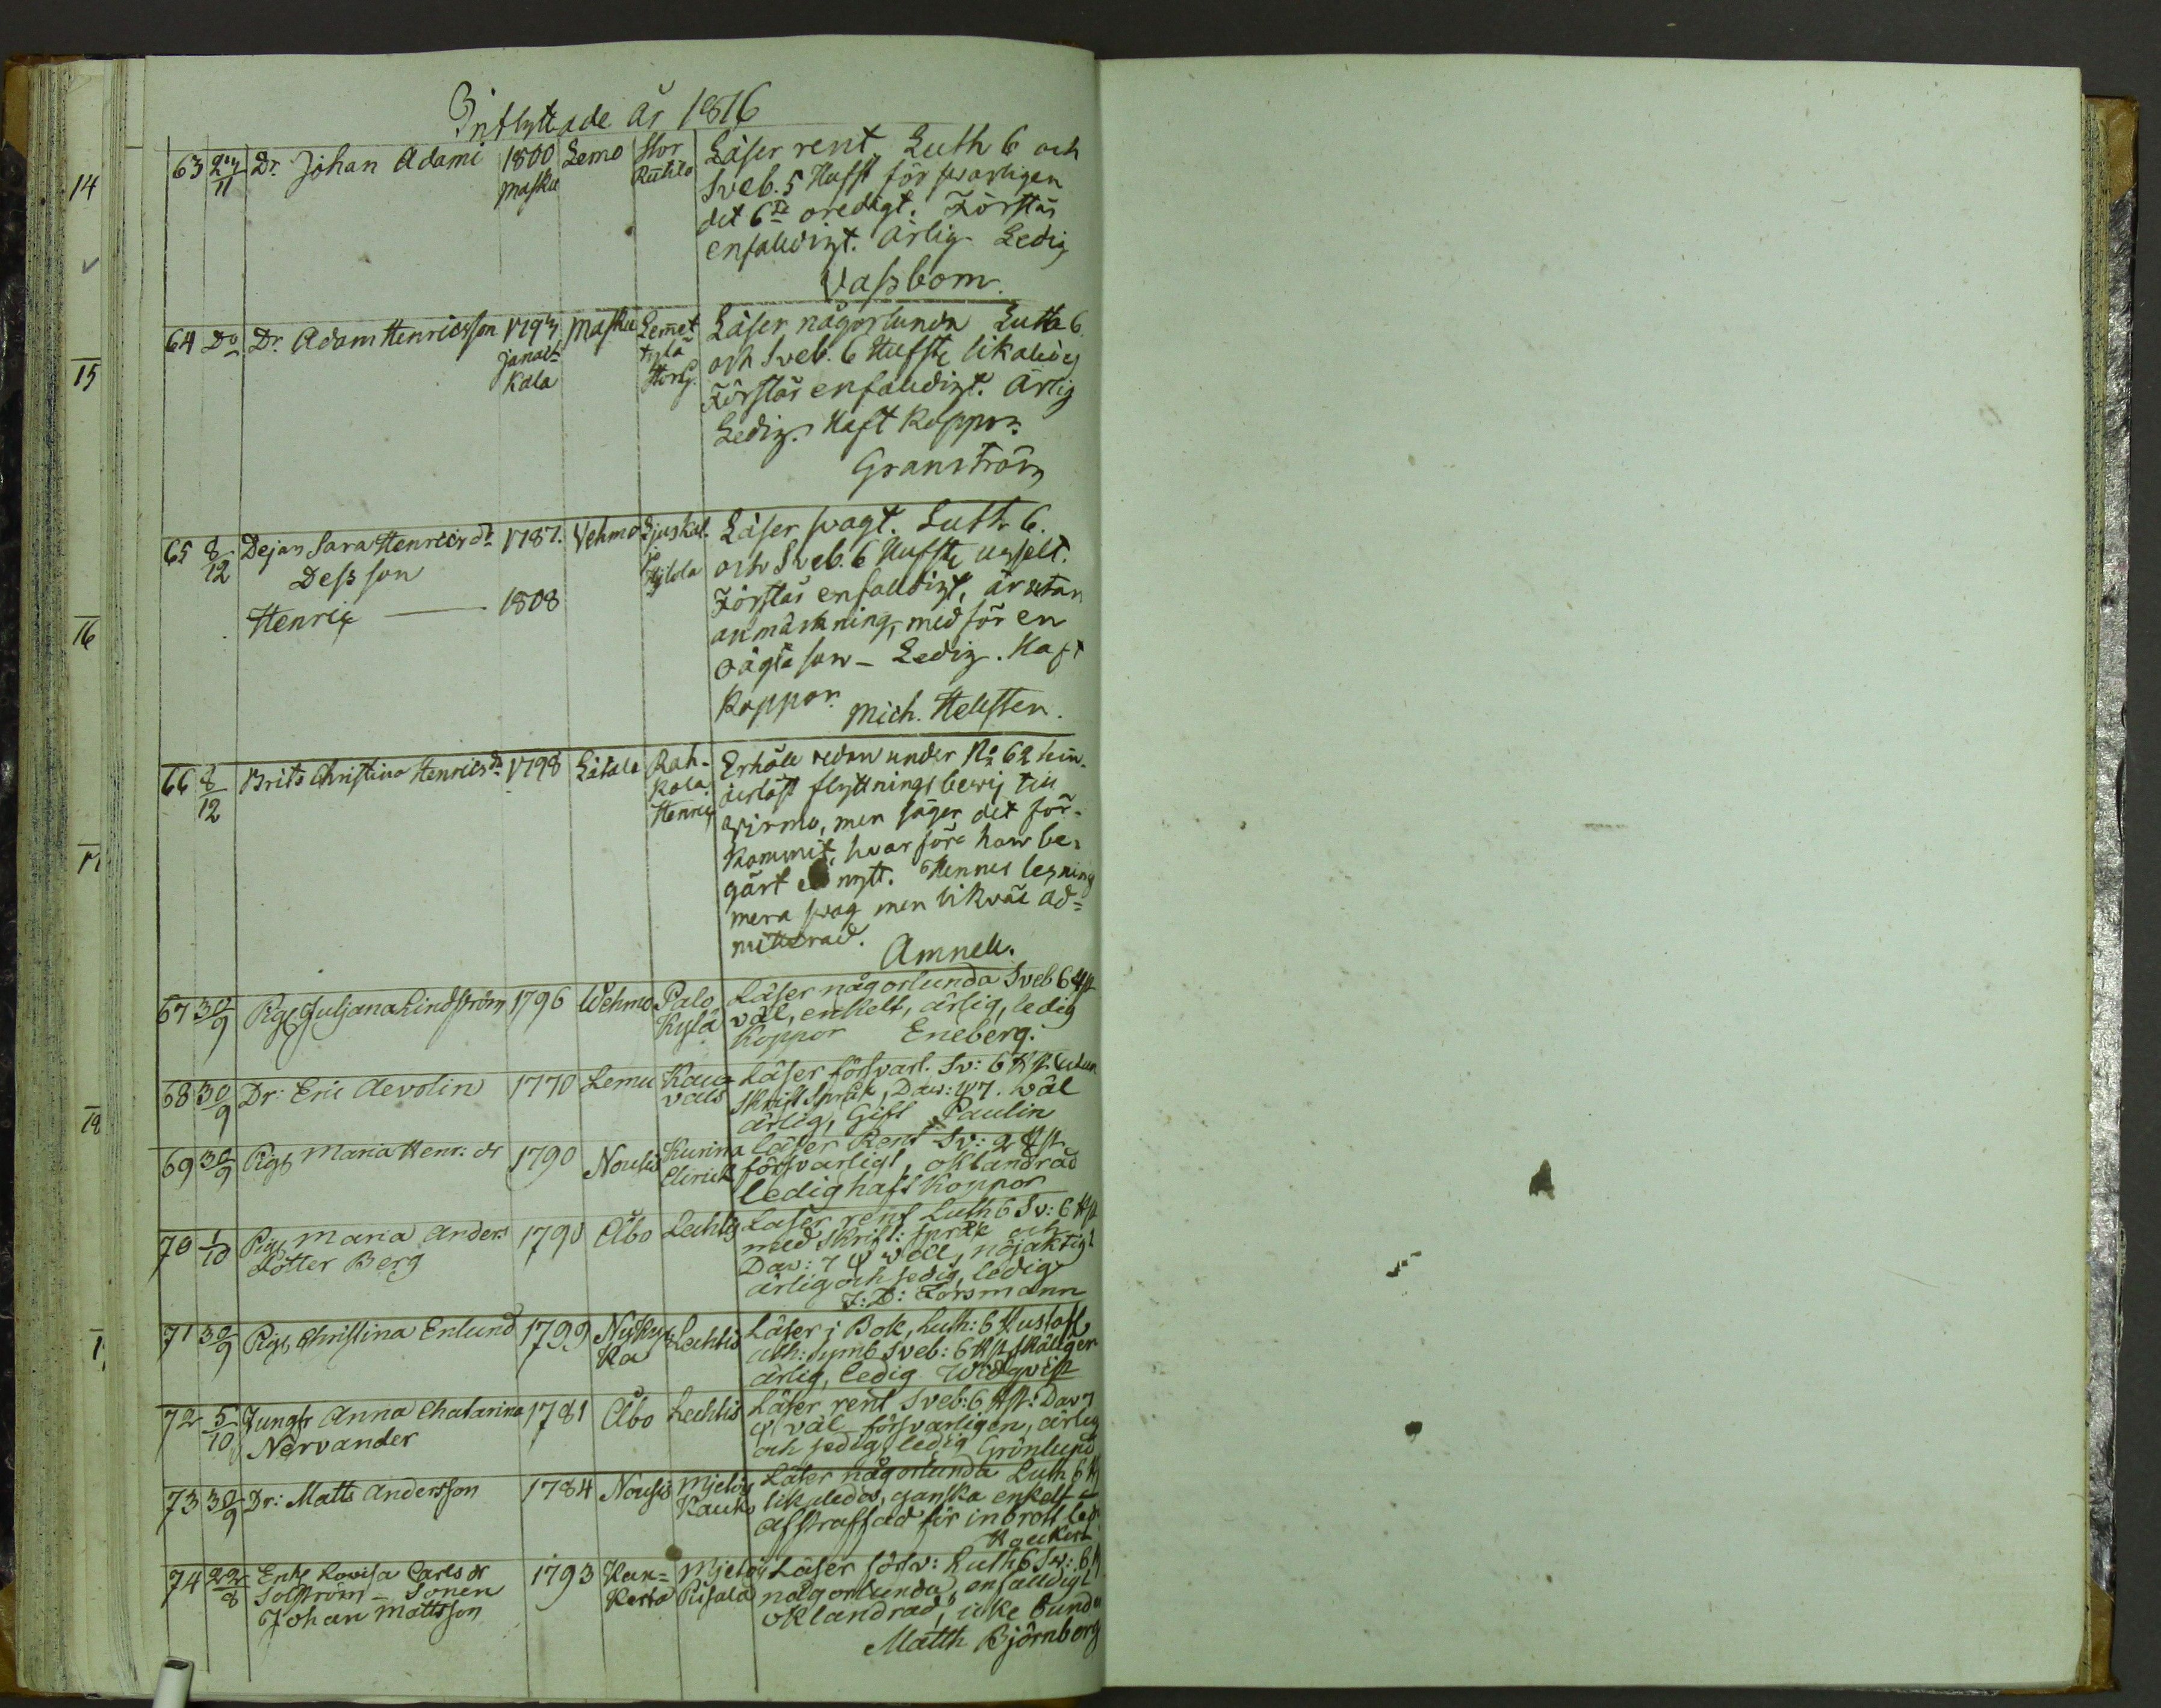 Inflyttade år 1816
63 27/11 Dr. Johan Adami 1800 Masku Lemo Stor Ruhila Läser rent Luth 6 och
Sveb. 5 Hufst försvarligen
det 6te oredigt. Förstår
enfaldigt. Ärlig Ledig
Vassbom.
64 Do Dr. Adam Henricsson 1797 Janakkala Masku Lemet tylä Storg. Läser någorlunda Luth 6.
och Sveb. 6 Hufst. likaledes
Förstår enfaldigt. Ärlig
Ledig. Haft Koppor.
Granström
65 8/12 Dejan Sara Henricsdr 1787. Vehmo Hylola Läser svagt. Luth 6.
Dess son och Sveb. 6 Hufst. usselt.
Henric 1808 Förstår enfaldigt, är utan
anmärkning, medför en
oägta son - Ledig. Haft
Koppor. Mich. Hellsten.
66 8/12 Brita Christina Henricsdr 1798 Laitala Rahkola Henric Erhöll redan under No 62 hin-
derlöst flyttningsbevis till
Virmo, men säger det för-
kommit, hvarföre hon be-
gärt nytt. Hennes läsning
mera svag men likväl ad-
mitterad. Amnell.
67 30/9 Pig. Juljana Lindström 1796 Wehmo Palo Kylä Läser någorlunda Sveb 6 Hst
väl, enkelt, ärlig, ledig
Koppor Eneberg.
68 30/9 Dr: Eric Aevolin 1770 Lemu Läser försvarl. Sv: 6 Hst utan
Skrift Språk, Dav: 7. Wäl
ärlig, Gift Paulin
69 30/9 Pig. Maria Henr: dr 1790 Nousis Läser Rent Sv: 2 Hst
försvarligt, oklandrad
ledig haft Koppor
70 1/10 Pig. Maria Anders 1790 Åbo Lechtis Läser rent Luth 6 Sv: 6 Hst
dotter Berg med Skrift: språk och
Dav: 7 ψ well, nöjaktigt
ärlig och sedig, ledig
J: D: Forsmann
71 30/9 Pig. Christina Enlund 1799 Nykyrka Lechtis Läser i Bok, Luth: 6 Hustafl
ath: symb Sveb: 6 Hst skäligen
ärlig, ledig Widqvist
72 5/10 Jungfr Anna Chatarina 1781 Åbo Lechtis Läser rent Sveb: 6 Hst: Dav 7
Nervander ψ väl försvarligen, ärlig
och sedig, ledig Grönlund
73 30/9 Dr: Matts Andersson 1784 Nousis Mjetois Läser någorlunda Luth 6 H
likaledes, ganska enkelt
afstraffad för inbrott led
74 22/8 Enk. Lovisa Carls dr 1793 Karkarla Mjetois Läser försv: Luth 6 Sv: 6 H
Solström - Sonen någorlunda, enfaldigt
Johan Mattsson oklandrad, icke bunden
Matth Björnborg
14
15
16